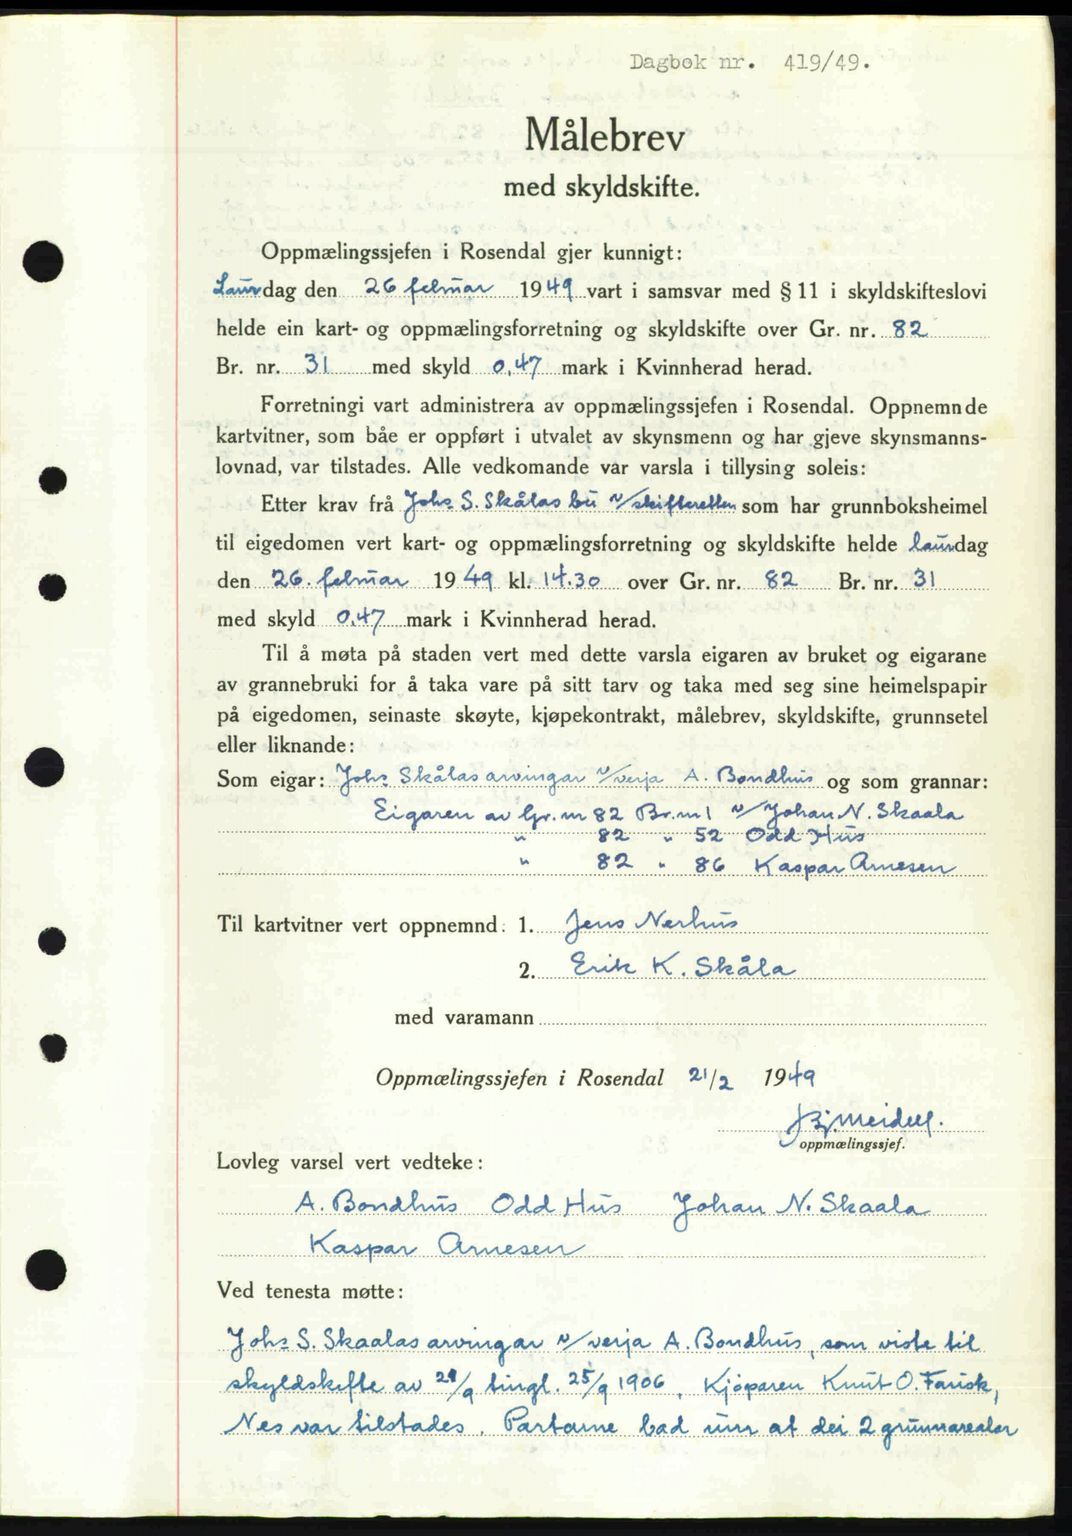 Dagbok nr. 419/49.
Målebrev
med skyldskifte.
Oppmælingssjefen i Rosendal gjer kunnigt:
Laurdag den 26 februar 1949 vart i samsvar med § 11 i skyldskifteslovi
helde ein kart- og oppmælingsforretning og skyldskifte over Gr. nr. 82
Br. nr. 31 med skyld 0,47 mark i Kvinnherad herad.
Forretningi vart administrera av oppmælingssjefen i Rosendal. Oppnemnde
kartvitner, som båe er oppført i utvalet av skynsmenn og har gjeve skynsmanns-
lovnad, var tilstades. Alle vedkomande var varsla i tillysing soleis:
Etter krav frå Johs S. Skålas bu v/skifteretten som har grunnboksheimel
til eigedomen vert kart- og oppmælingsforretning og skyldskifte helde laurdag
den 26. februar 1949 kl. 14.30 over Gr. nr. 82 Br. nr. 31
med skyld 0,47 mark i Kvinnherad herad.
Til å møta på staden vert med dette varsla eigaren av bruket og eigarane
av grannebruki for å taka vare på sitt tarv og taka med seg sine heimelspapir
på eigedomen, seinaste skøyte, kjøpekontrakt, målebrev, skyldskifte, grunnsetel
eller liknande:
Som eigar: Johs Skålas arvingar v/verja A. Bondhus og som grannar:
Eigaren av Gr. nr 82 Br. nr 1 v/Johan N. Skaala
" 82 " 52 Odd Hus
" 82 " 86 Kaspar Arnesen
Til kartvitner vert oppnemnd: 1. Jens Nerhus
2. Erik K. Skåla
med varamann
Oppmælingssjefen i Rosendal 21/2 1949
Bj. Meidell.
oppmælingssjef.
Lovleg varsel vert vedteke:
A. Bondhus Odd Hus Johan N. Skaala
Kaspar Arnesen
Ved tenesta møtte:
Johs S. Skaalas arvingar v/verja A. Bondhus, som viste til
skyldskifte av 21/9 tingl. 25/9 1906. Kjöparen Knut O. Farisk,
Nes var tilstades. Partarne bad um at dei 2 grunnarealer